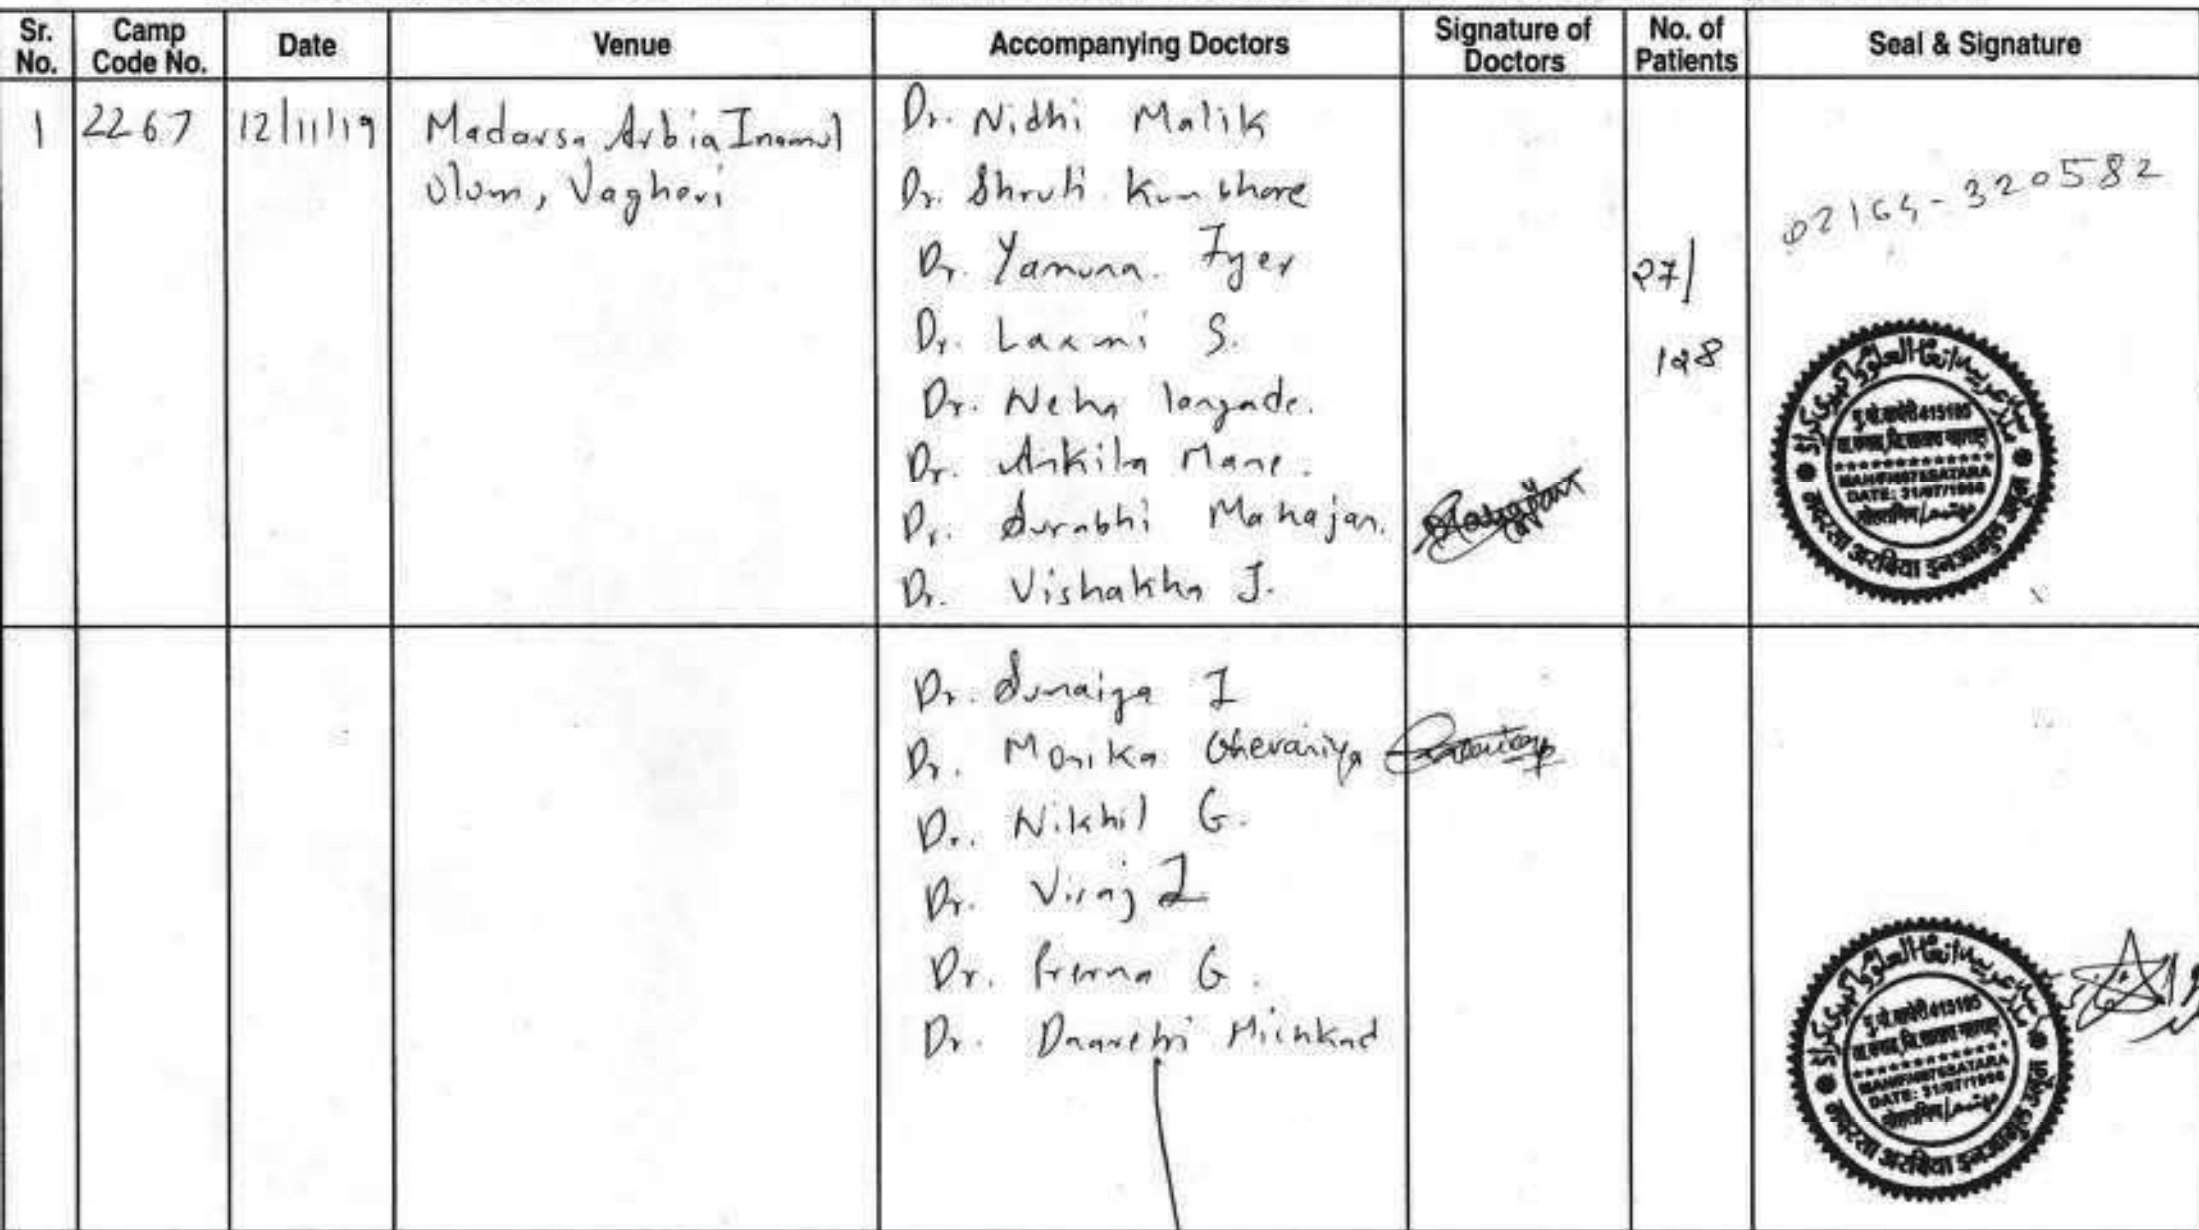 Sr. No.
Camp Code No.
Date
Venue
Accompanying Doctors
Signature of Doctors
No. of Patients
Seal & Signature
1
2267
12/11/19
Madarsa Arbia Inamul
Ulum, Vagheri
Dr. Nidhi Malik
Dr. Shruti Kumbhare
Dr. Yamuna. Iyer
Dr. Laxmi S.
Dr. Neha
Dr. Ankita Mane.
Dr. Surabhi Mahajan.
Dr. Vishakha J.
27/
128
02164-320582
415105
SATARA
DATE: 31/07/1996
मदरसा अरबिया इनआमुल उलूम
Dr. Sumaiya I
Dr. Monika Ghevariya
Dr. Nikhil G.
Dr. Viraj I
Dr. Prerna G.
Dr.
415105
SATARA
DATE: 31/07/1996
मदरसा अरबिया इनआमुल उलूम